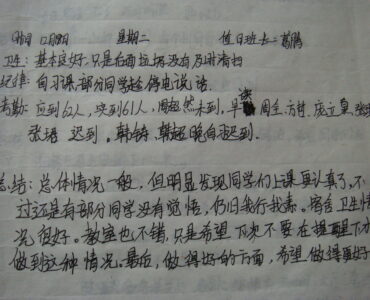 12月9日 星期二 值日班长：葛腾
卫生：基本良好，只是后面垃圾没有及时清扫
纪律：自习课部分同学趁停电说话
考勤：应到62人，实到61人，周超然未到，早 周全、方持、庞立皇、张
张 迟到。韩铸、韩超晚自迟到.
总结：总体情况一般，但明显发现同学们上课更认真了，不
过还是有部分同学没有觉悟，仍旧我行我素。宿舍卫生情
况很好。教室也不错，只是希望下次不要在提醒下才
做到这种情况。最后，做得好的方面，希望做得更好